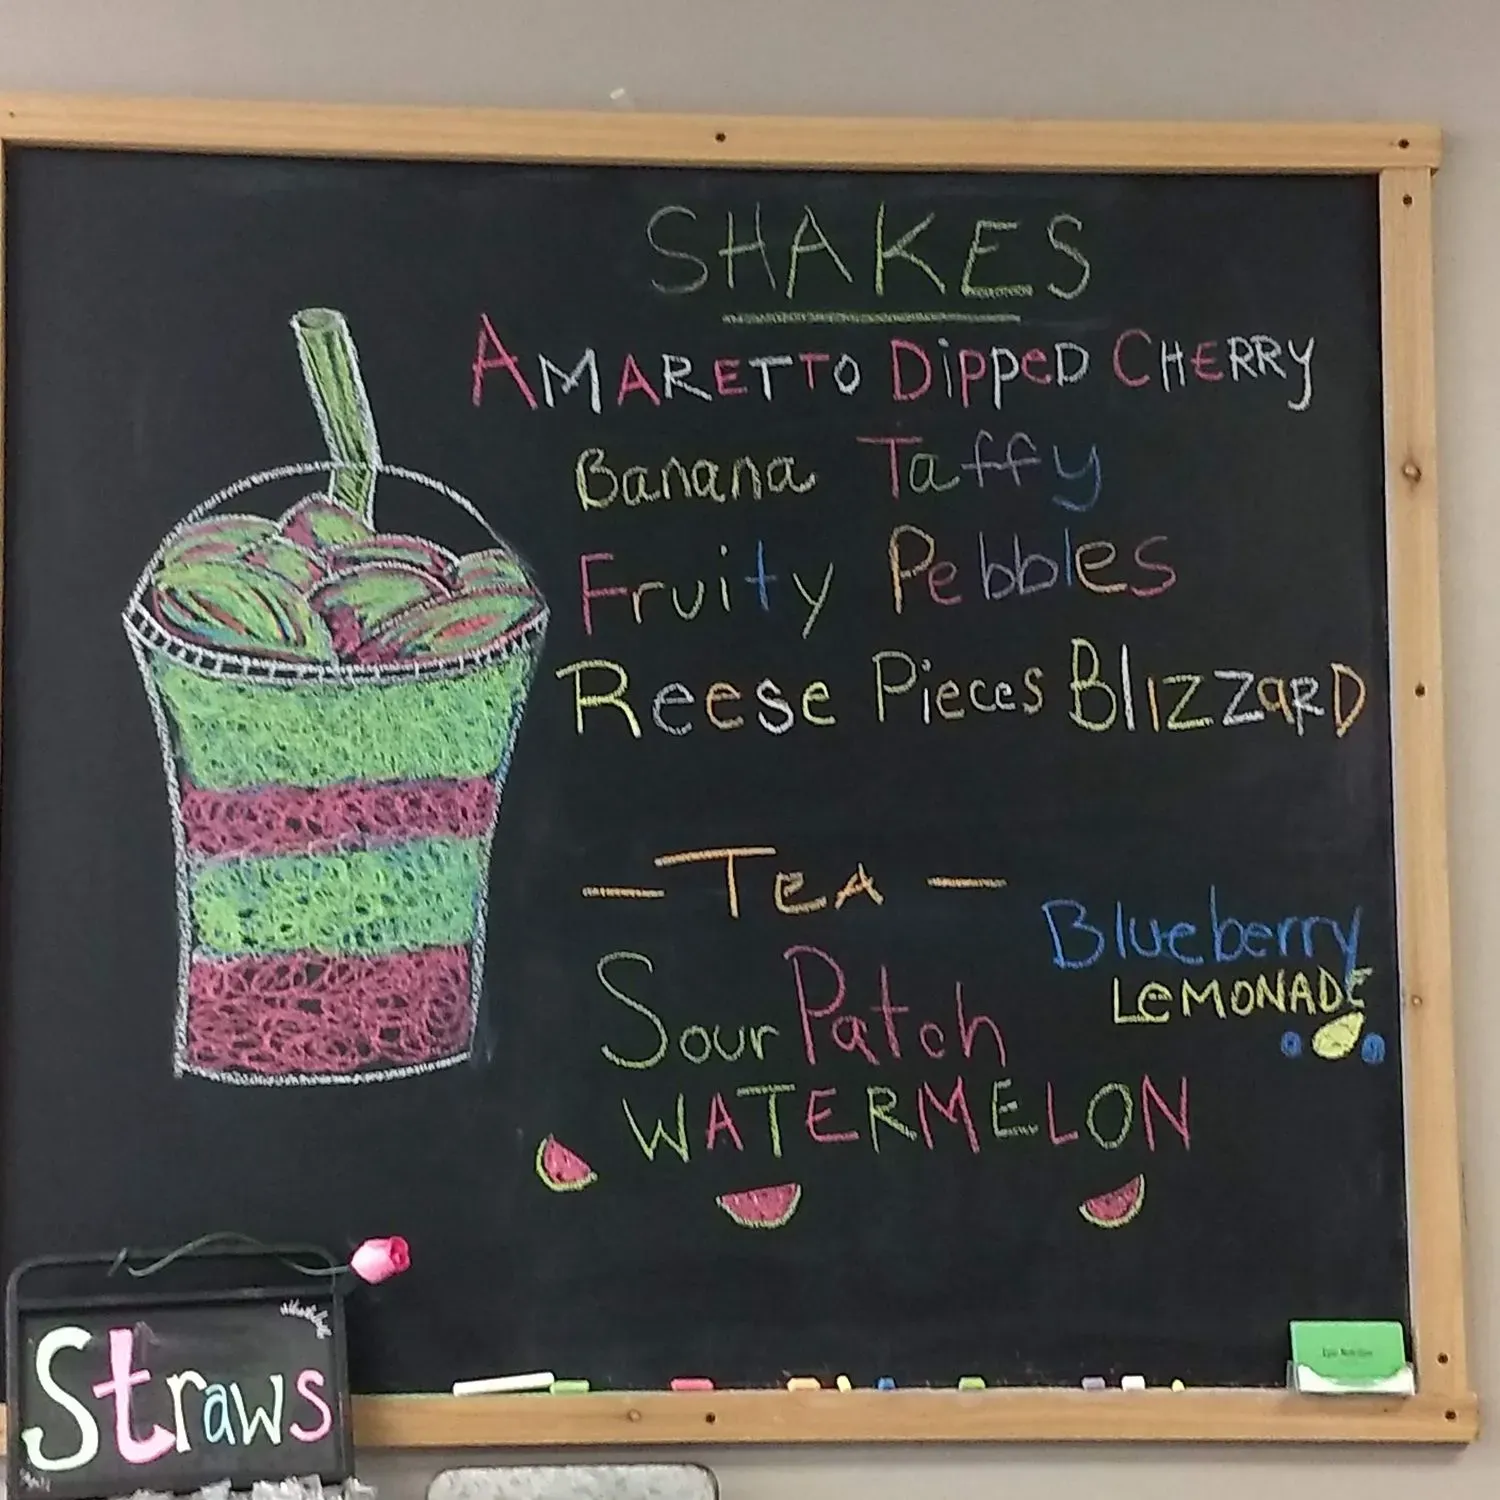 SHAKES
AMARETTO DippeD CHERRY
Banana Taffy
Fruity Pebbles
Reese Pieces BlizzaRD
— TeA —
Blueberry
LeMONADE
Sour Patch
WATERMELON
Straws